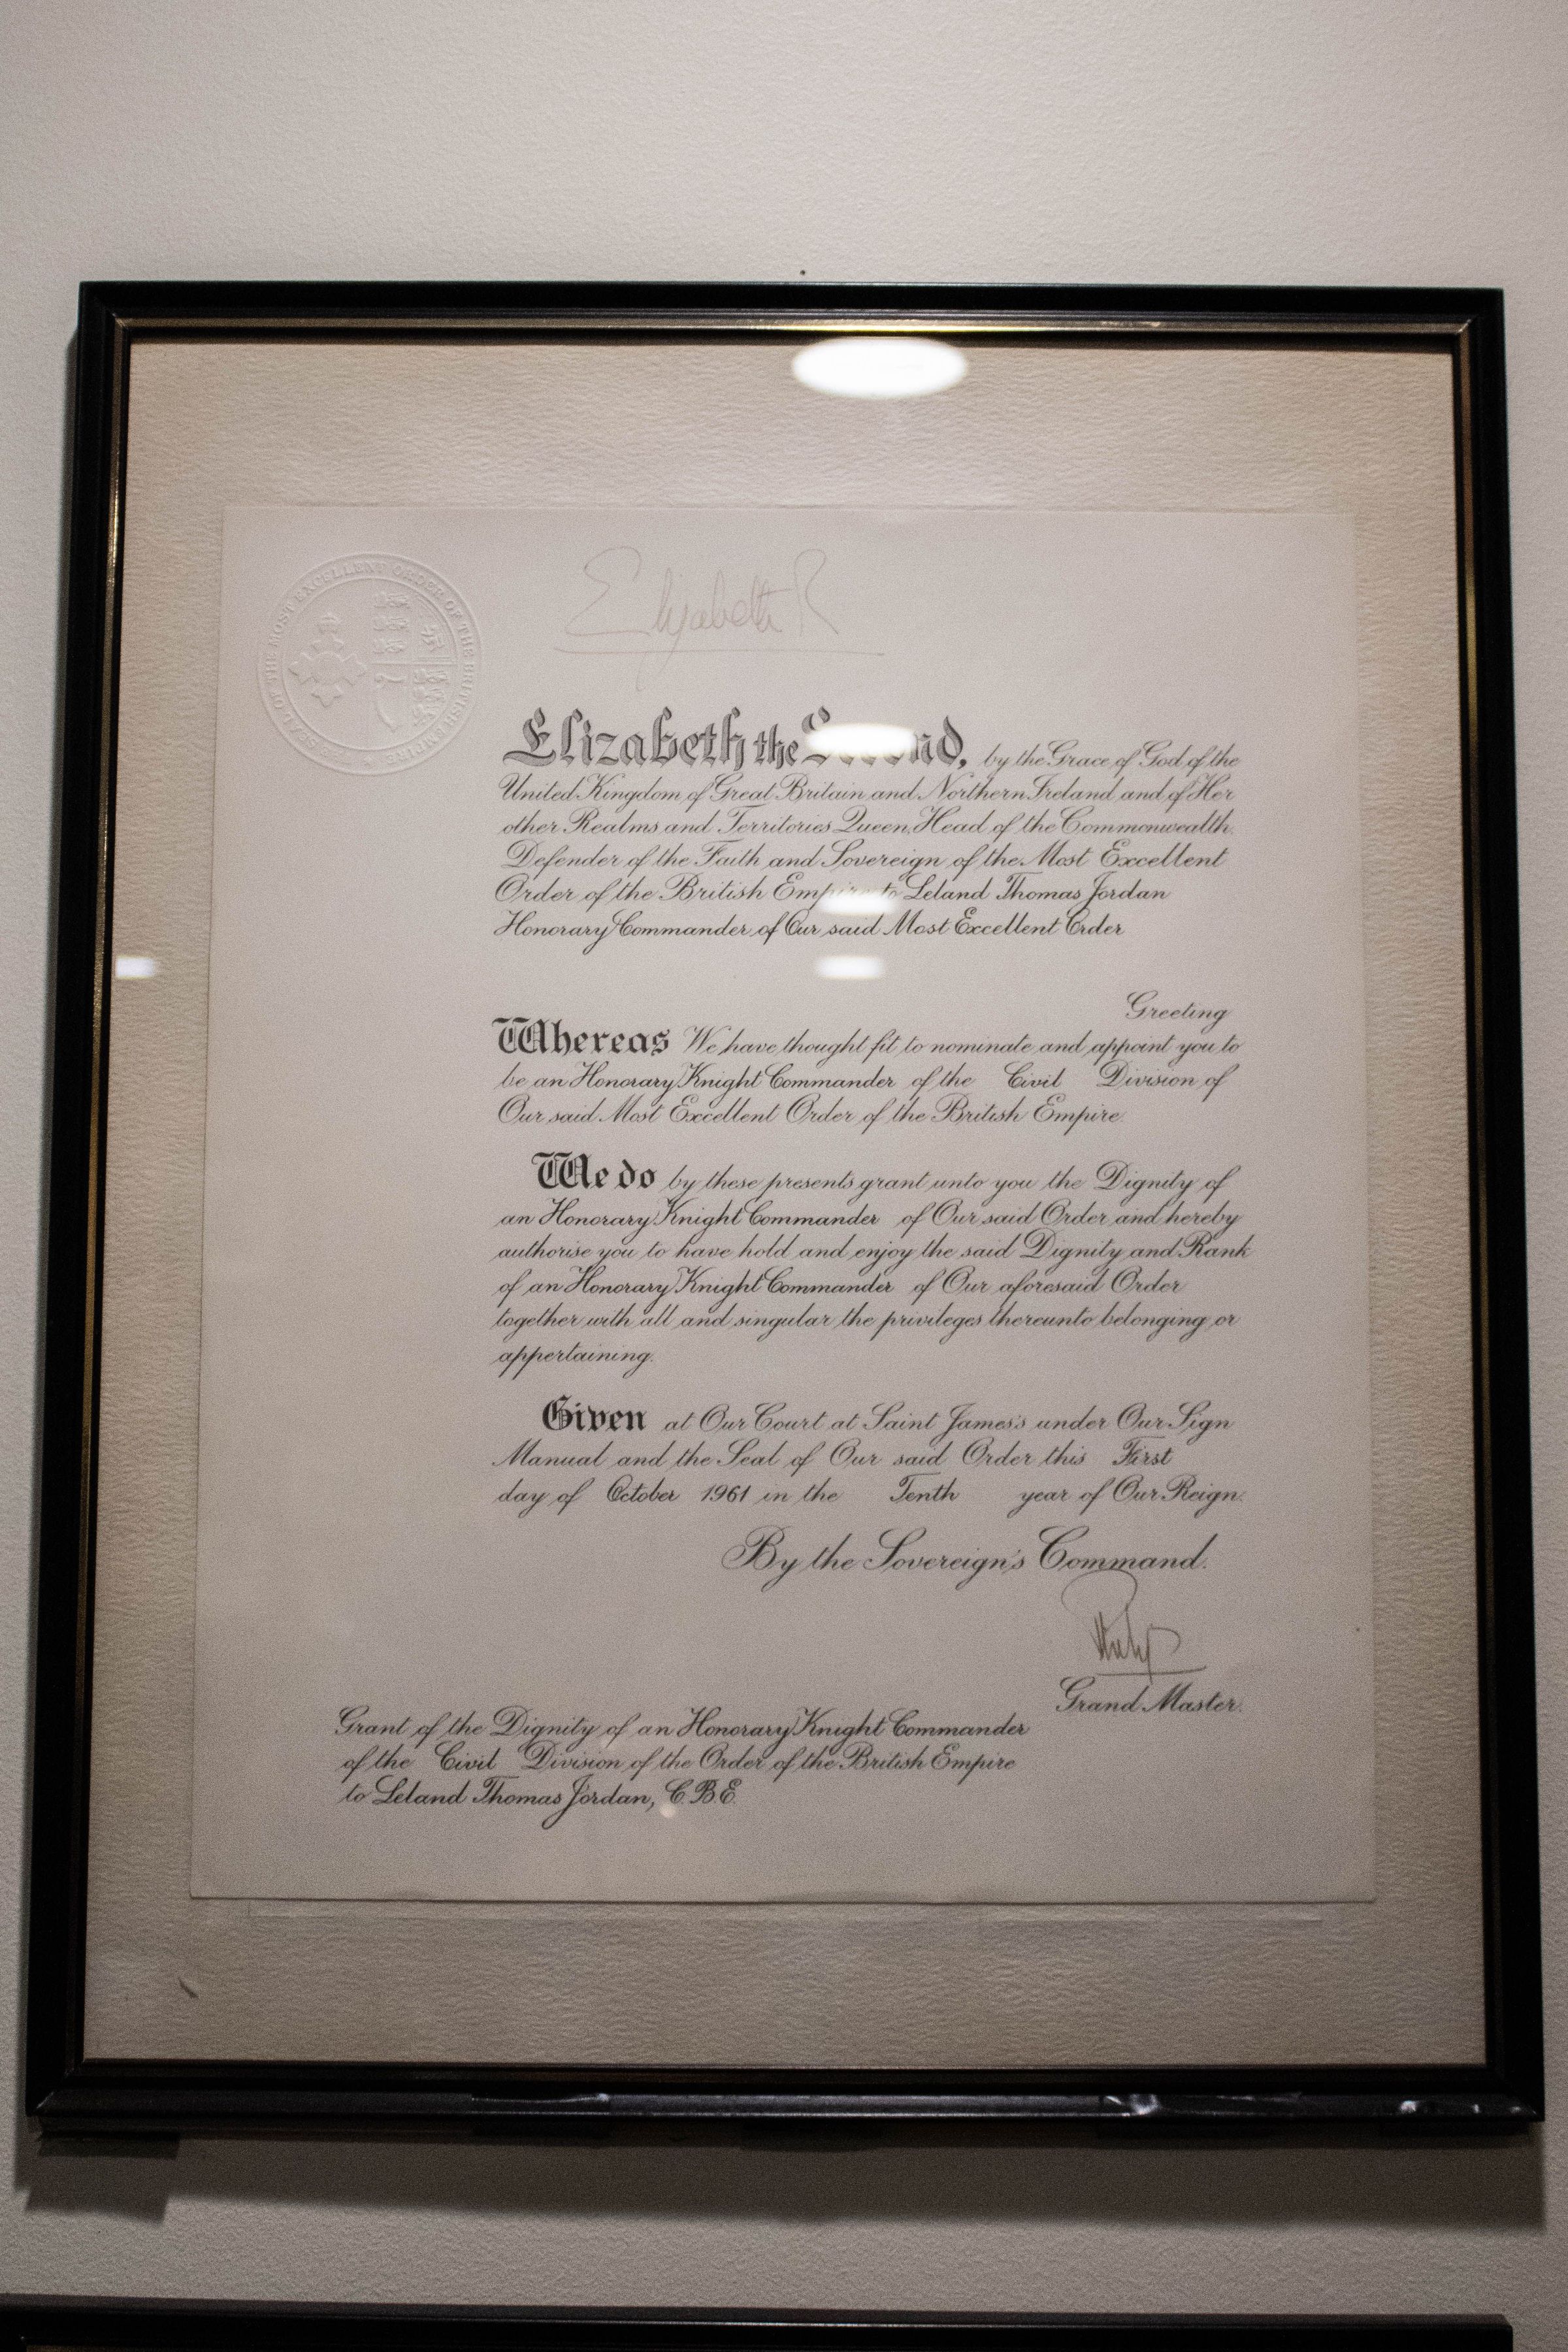 SEAL OF THE MOST EXCELLENT ORDER OF THE BRITISH EMPIRE
Elizabeth R
Elizabeth the Second, by the Grace of God of the
United Kingdom of Great Britain and Northern Ireland and of Her
other Realms and Territories Queen, Head of the Commonwealth,
Defender of the Faith and Sovereign of the Most Excellent
Order of the British Empire to Leland Thomas Jordan
Honorary Commander of Our said Most Excellent Order
Greeting
Whereas We have thought fit to nominate and appoint you to
be an Honorary Knight Commander of the Civil Division of
Our said Most Excellent Order of the British Empire.
We do by these presents grant unto you the Dignity of
an Honorary Knight Commander of Our said Order and hereby
authorise you to have hold and enjoy the said Dignity and Rank
of an Honorary Knight Commander of Our aforesaid Order
together with all and singular the privileges thereunto belonging or
appertaining.
Given at Our Court at Saint James's under Our Sign
Manual and the Seal of Our said Order this First
day of October 1961 in the Tenth year of Our Reign.
By the Sovereign's Command.
Philip
Grand Master.
Grant of the Dignity of an Honorary Knight Commander
of the Civil Division of the Order of the British Empire
to Leland Thomas Jordan, C.B.E.